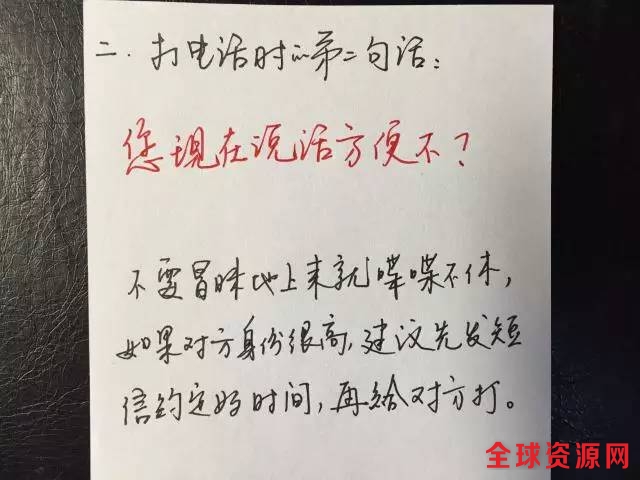 二.打电话时的第二句话：
您现在说话方便不？
不要冒昧地上来就喋喋不休，
如果对方身份很高，建议先发短
信约定好时间，再给对方打。
全球资源网